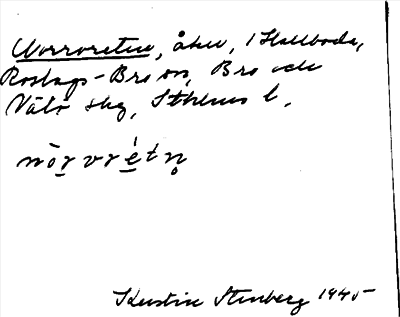 Norrvreten, åker, i Hallboda,
Roslags-Bro sn, Bro och
Vätö skg, Sthlms l.
nòrvrétn̥
Kerstin Stenberg 1945